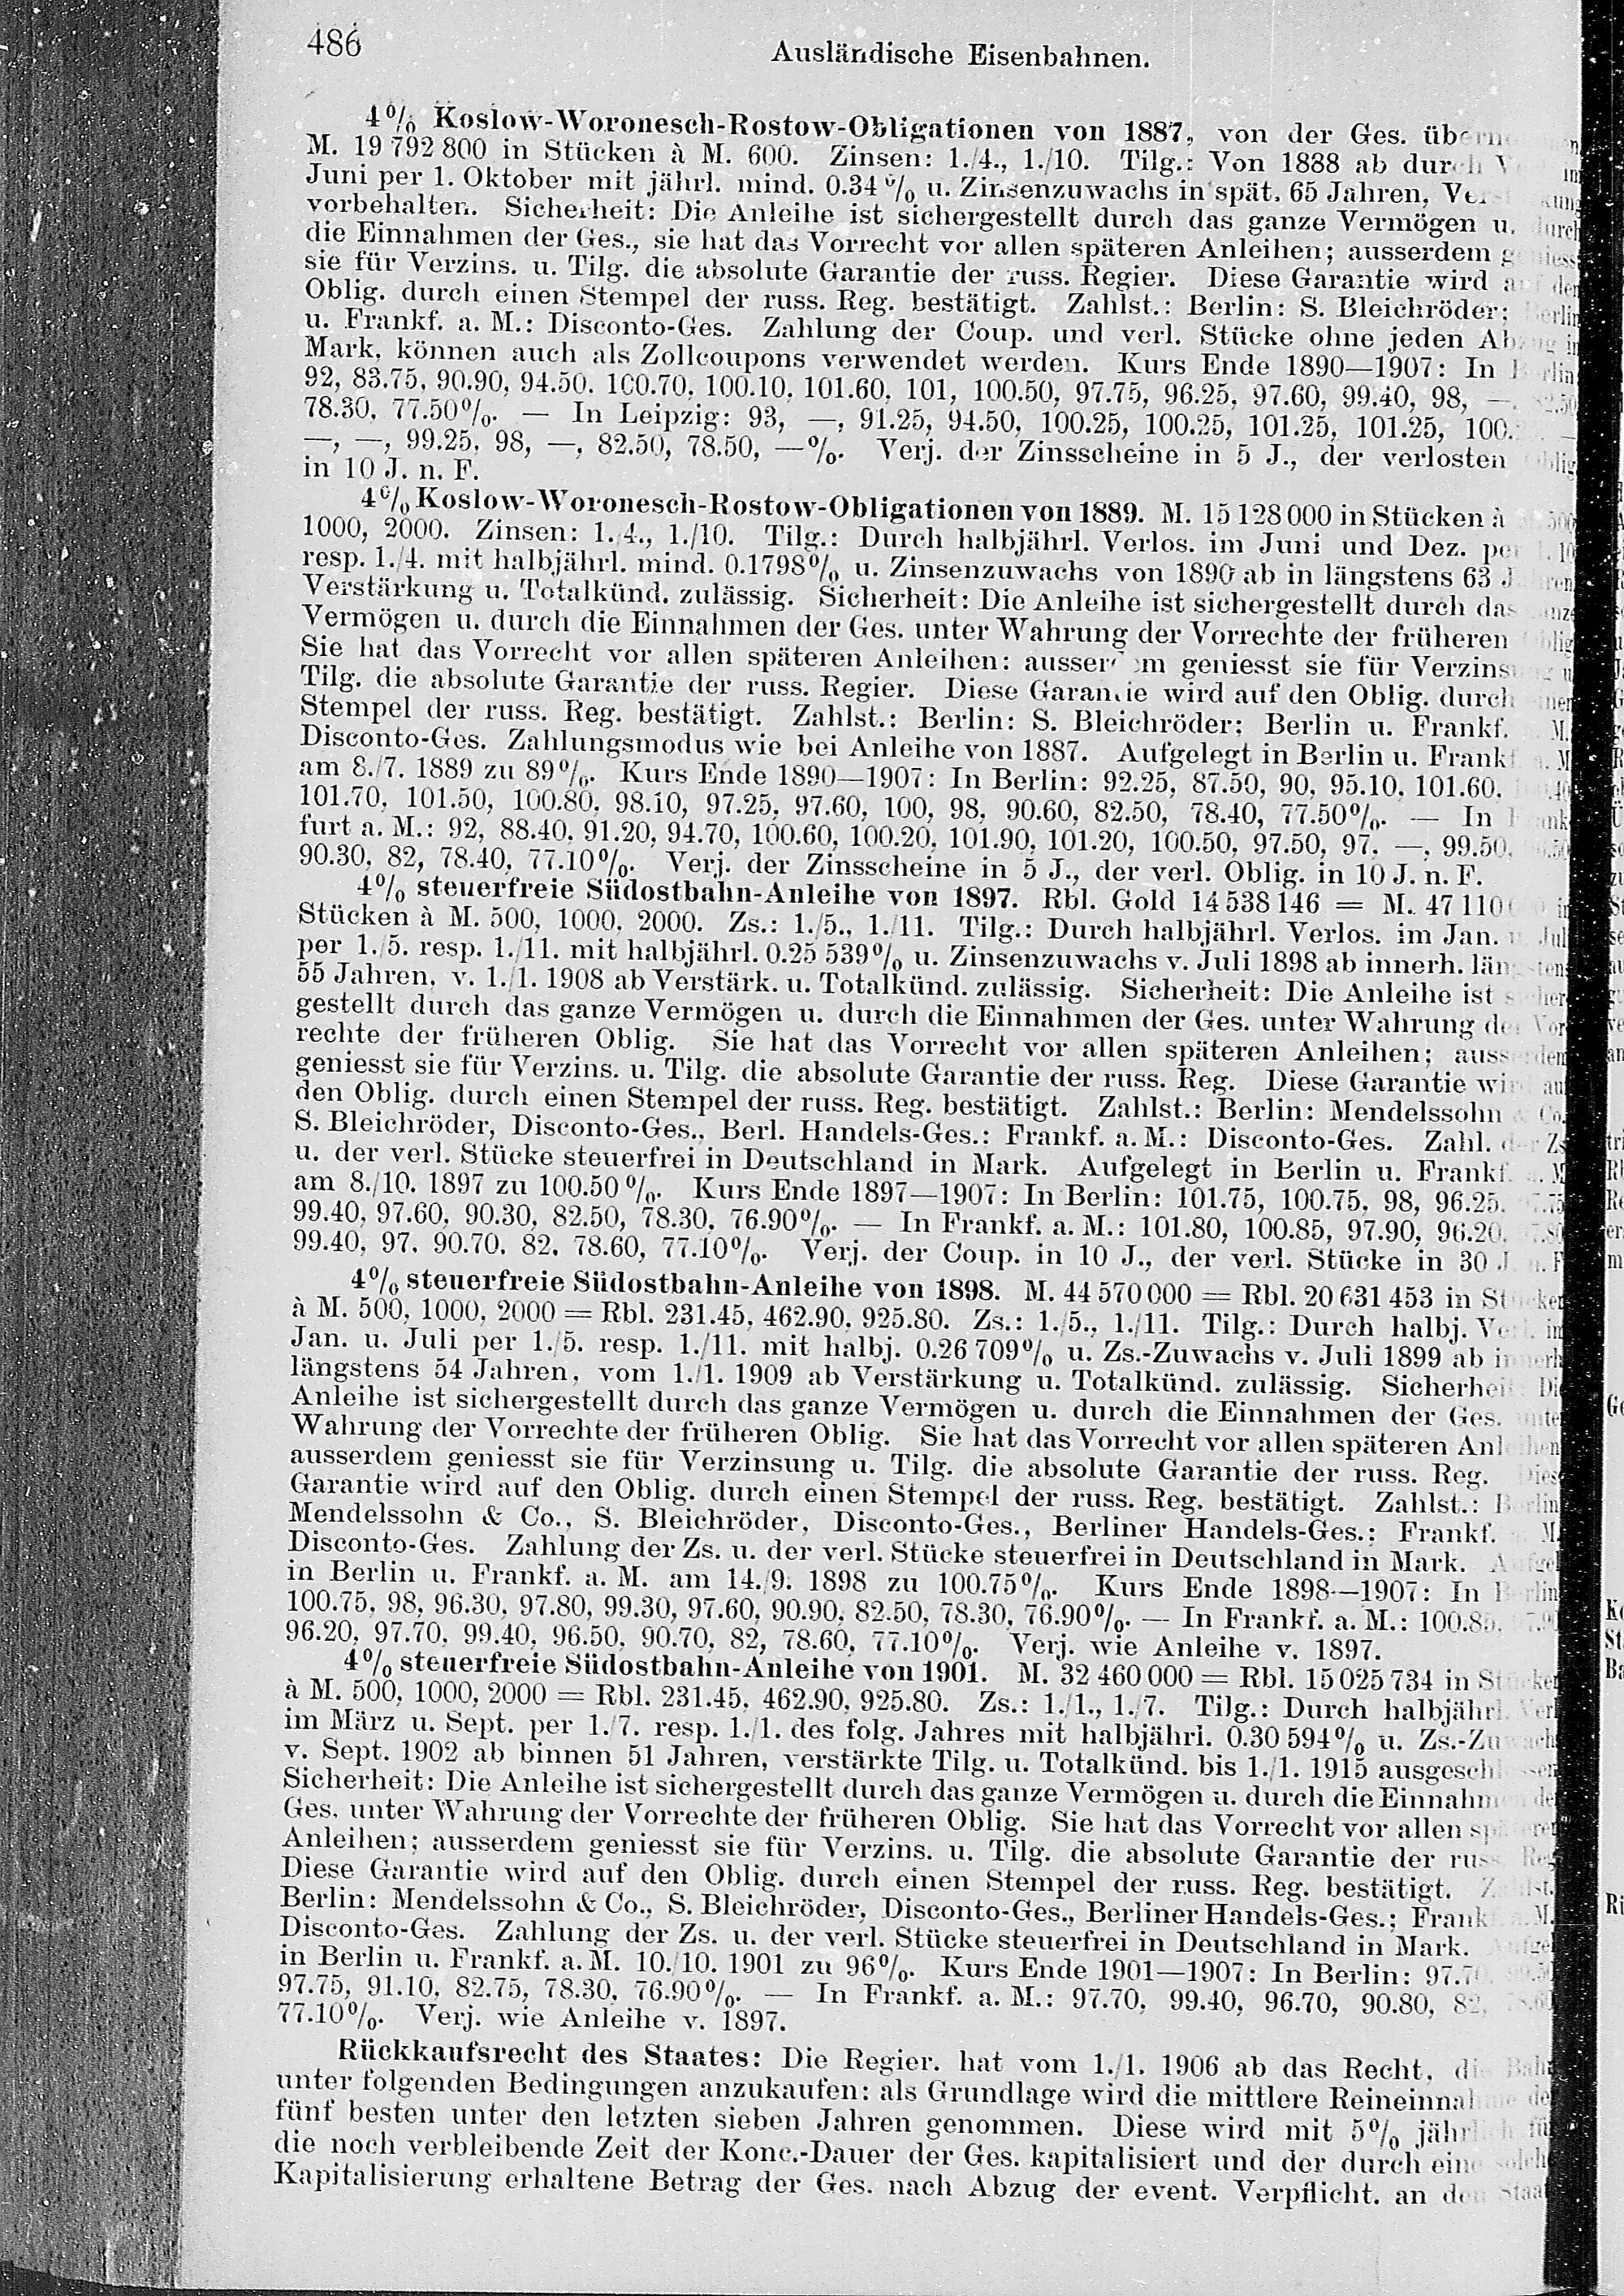 486
Ausländische Eisenbahnen.
4% Koslow-Woronesch-Rostow-Obligationen von 1887, von der Ges.
M. 19 792 800 in Stücken à M. 600. Zinsen: 1./4., 1./10. Tilg.: Von 1888 ab durch
Juni per 1. Oktober mit jährl. mind. 0.34% u. Zinsenzuwachs in spät. 65 Jahren,
vorbehalten. Sicherheit: Die Anleihe ist sichergestellt durch das ganze Vermögen u. durch
die Einnahmen der Ges., sie hat das Vorrecht vor allen späteren Anleihen; ausserdem
sie für Verzins. u. Tilg. die absolute Garantie der russ. Regier. Diese Garantie wird auf den
Oblig. durch einen Stempel der russ. Reg. bestätigt. Zahlst.: Berlin: S. Bleichröder; Berlin
u. Frankf. a. M.: Disconto-Ges. Zahlung der Coup. und verl. Stücke ohne jeden Abzug in
Mark, können auch als Zollcoupons verwendet werden. Kurs Ende 1890—1907: In Berlin
92, 83.75, 90.90, 94.50, 100.70, 100.10, 101.60, 101, 100.50, 97.75, 96.25, 97.60, 99.40, 98, —, 82.50
78.30, 77.50%. — In Leipzig: 93, —, 91.25, 94.50, 100.25, 100.25, 101.25, 101.25,
—, —, 99.25, 98, —, 82.50, 78.50, —%. Verj. der Zinsscheine in 5 J., der verlosten Oblig
in 10 J. n. F.
4% Koslow-Woronesch-Rostow-Obligationen von 1889. M. 15 128 000 in Stücken à 500
1000, 2000. Zinsen: 1./4., 1./10. Tilg.: Durch halbjährl. Verlos. im Juni und Dez. per 1. 10
resp. 1./4. mit halbjährl. mind. 0.1798% u. Zinsenzuwachs von 1890 ab in längstens 63 Jahren
Verstärkung u. Totalkünd. zulässig. Sicherheit: Die Anleihe ist sichergestellt durch das ganze
Vermögen u. durch die Einnahmen der Ges. unter Wahrung der Vorrechte der früheren Oblig
Sie hat das Vorrecht vor allen späteren Anleihen; ausserdem geniesst sie für Verzinsung u
Tilg. die absolute Garantie der russ. Regier. Diese Garantie wird auf den Oblig. durch einen
Stempel der russ. Reg. bestätigt. Zahlst.: Berlin: S. Bleichröder; Berlin u. Frankf. a. M.
Disconto-Ges. Zahlungsmodus wie bei Anleihe von 1887. Aufgelegt in Berlin u. Frankf a. M
am 8./7. 1889 zu 89%. Kurs Ende 1890—1907: In Berlin: 92.25, 87.50, 90, 95.10, 101.60,
101.70, 101.50, 100.80, 98.10, 97.25, 97.60, 100, 98, 90.60, 82.50, 78.40, 77.50%. — In Frank
furt a. M.: 92, 88.40, 91.20, 94.70, 100.60, 100.20, 101.90, 101.20, 100.50, 97.50, 97, —, 99.50,
90.30, 82, 78.40, 77.10%. Verj. der Zinsscheine in 5 J., der verl. Oblig. in 10 J. n. F.
4% steuerfreie Südostbahn-Anleihe von 1897. Rbl. Gold 14 538 146 = M. in
Stücken à M. 500, 1000, 2000. Zs.: 1./5., 1./11. Tilg.: Durch halbjährl. Verlos. im Jan. u. Juli
per 1./5. resp. 1./11. mit halbjährl. 0.25 539% u. Zinsenzuwachs v. Juli 1898 ab innerh. längstens
55 Jahren, v. 1./1. 1908 ab Verstärk. u. Totalkünd. zulässig. Sicherheit: Die Anleihe ist sicher
gestellt durch das ganze Vermögen u. durch die Einnahmen der Ges. unter Wahrung der Vor
rechte der früheren Oblig. Sie hat das Vorrecht vor allen späteren Anleihen; ausserdem
geniesst sie für Verzins. u. Tilg. die absolute Garantie der russ. Reg. Diese Garantie wird auf
den Oblig. durch einen Stempel der russ. Reg. bestätigt. Zahlst.: Berlin: Mendelssohn & Co.
S. Bleichröder, Disconto-Ges., Berl. Handels-Ges.: Frankf. a. M.: Disconto-Ges. Zahl. der Zs
u. der verl. Stücke steuerfrei in Deutschland in Mark. Aufgelegt in Berlin u. Frankf. a. M
am 8./10. 1897 zu 100.50%. Kurs Ende 1897—1907: In Berlin: 101.75, 100.75, 98, 96.25,
99.40, 97.60, 90.30, 82.50, 78.30, 76.90%. — In Frankf. a. M.: 101.80, 100.85, 97.90, 96.20,
99.40, 97, 90.70, 82, 78.60, 77.10%. Verj. der Coup. in 10 J., der verl. Stücke in 30 J. n. F
4% steuerfreie Südostbahn-Anleihe von 1898. M. 44 570 000 = Rbl. 20 631 453 in Stücken
à M. 500, 1000, 2000 = Rbl. 231.45, 462.90, 925.80. Zs.: 1./5., 1./11. Tilg.: Durch halbj. Verl. im
Jan. u. Juli per 1./5. resp. 1./11. mit halbj. 0.26 709% u. Zs.-Zuwachs v. Juli 1899 ab innerh
längstens 54 Jahren, vom 1./1. 1909 ab Verstärkung u. Totalkünd. zulässig. Sicherheit: Die
Anleihe ist sichergestellt durch das ganze Vermögen u. durch die Einnahmen der Ges. unter
Wahrung der Vorrechte der früheren Oblig. Sie hat das Vorrecht vor allen späteren Anleihen
ausserdem geniesst sie für Verzinsung u. Tilg. die absolute Garantie der russ. Reg. Diese
Garantie wird auf den Oblig. durch einen Stempel der russ. Reg. bestätigt. Zahlst.: Berlin
Mendelssohn & Co., S. Bleichröder, Disconto-Ges., Berliner Handels-Ges.; Frankf. a. M.
Disconto-Ges. Zahlung der Zs. u. der verl. Stücke steuerfrei in Deutschland in Mark. Aufgel
in Berlin u. Frankf. a. M. am 14./9. 1898 zu 100.75%. Kurs Ende 1898—1907: In Berlin
100.75, 98, 96.30, 97.80, 99.30, 97.60, 90.90, 82.50, 78.30, 76.90%. — In Frankf. a. M.: 100.85,
96.20, 97.70, 99.40, 96.50, 90.70, 82, 78.60, 77.10%. Verj. wie Anleihe v. 1897.
4% steuerfreie Südostbahn-Anleihe von 1901. M. 32 460 000 = Rbl. 15 025 734 in Stücken
à M. 500, 1000, 2000 = Rbl. 231.45, 462.90, 925.80. Zs.: 1./1., 1./7. Tilg.: Durch halbjährl. Verl
im März u. Sept. per 1./7. resp. 1./1. des folg. Jahres mit halbjährl. 0.30 594% u. Zs.-Zuwachs
v. Sept. 1902 ab binnen 51 Jahren, verstärkte Tilg. u. Totalkünd. bis 1./1. 1915 ausgeschlossen
Sicherheit: Die Anleihe ist sichergestellt durch das ganze Vermögen u. durch die Einnahmen der
Ges. unter Wahrung der Vorrechte der früheren Oblig. Sie hat das Vorrecht vor allen späteren
Anleihen; ausserdem geniesst sie für Verzins. u. Tilg. die absolute Garantie der russ. Reg
Diese Garantie wird auf den Oblig. durch einen Stempel der russ. Reg. bestätigt. Zahlst.
Berlin: Mendelssohn & Co., S. Bleichröder, Disconto-Ges., Berliner Handels-Ges.; Frankf. a. M.
Disconto-Ges. Zahlung der Zs. u. der verl. Stücke steuerfrei in Deutschland in Mark. Aufgel
in Berlin u. Frankf. a. M. 10./10. 1901 zu 96%. Kurs Ende 1901—1907: In Berlin: 97.70,
97.75, 91.10, 82.75, 78.30, 76.90%. — In Frankf. a. M.: 97.70, 99.40, 96.70, 90.80, 82, 78.60
77.10%. Verj. wie Anleihe v. 1897.
Rückkaufsrecht des Staates: Die Regier. hat vom 1./1. 1906 ab das Recht, die Bahn
unter folgenden Bedingungen anzukaufen: als Grundlage wird die mittlere Reineinnahme der
fünf besten unter den letzten sieben Jahren genommen. Diese wird mit 5% jährlich für
die noch verbleibende Zeit der Konc.-Dauer der Ges. kapitalisiert und der durch eine solche
Kapitalisierung erhaltene Betrag der Ges. nach Abzug der event. Verpflicht. an den Staat